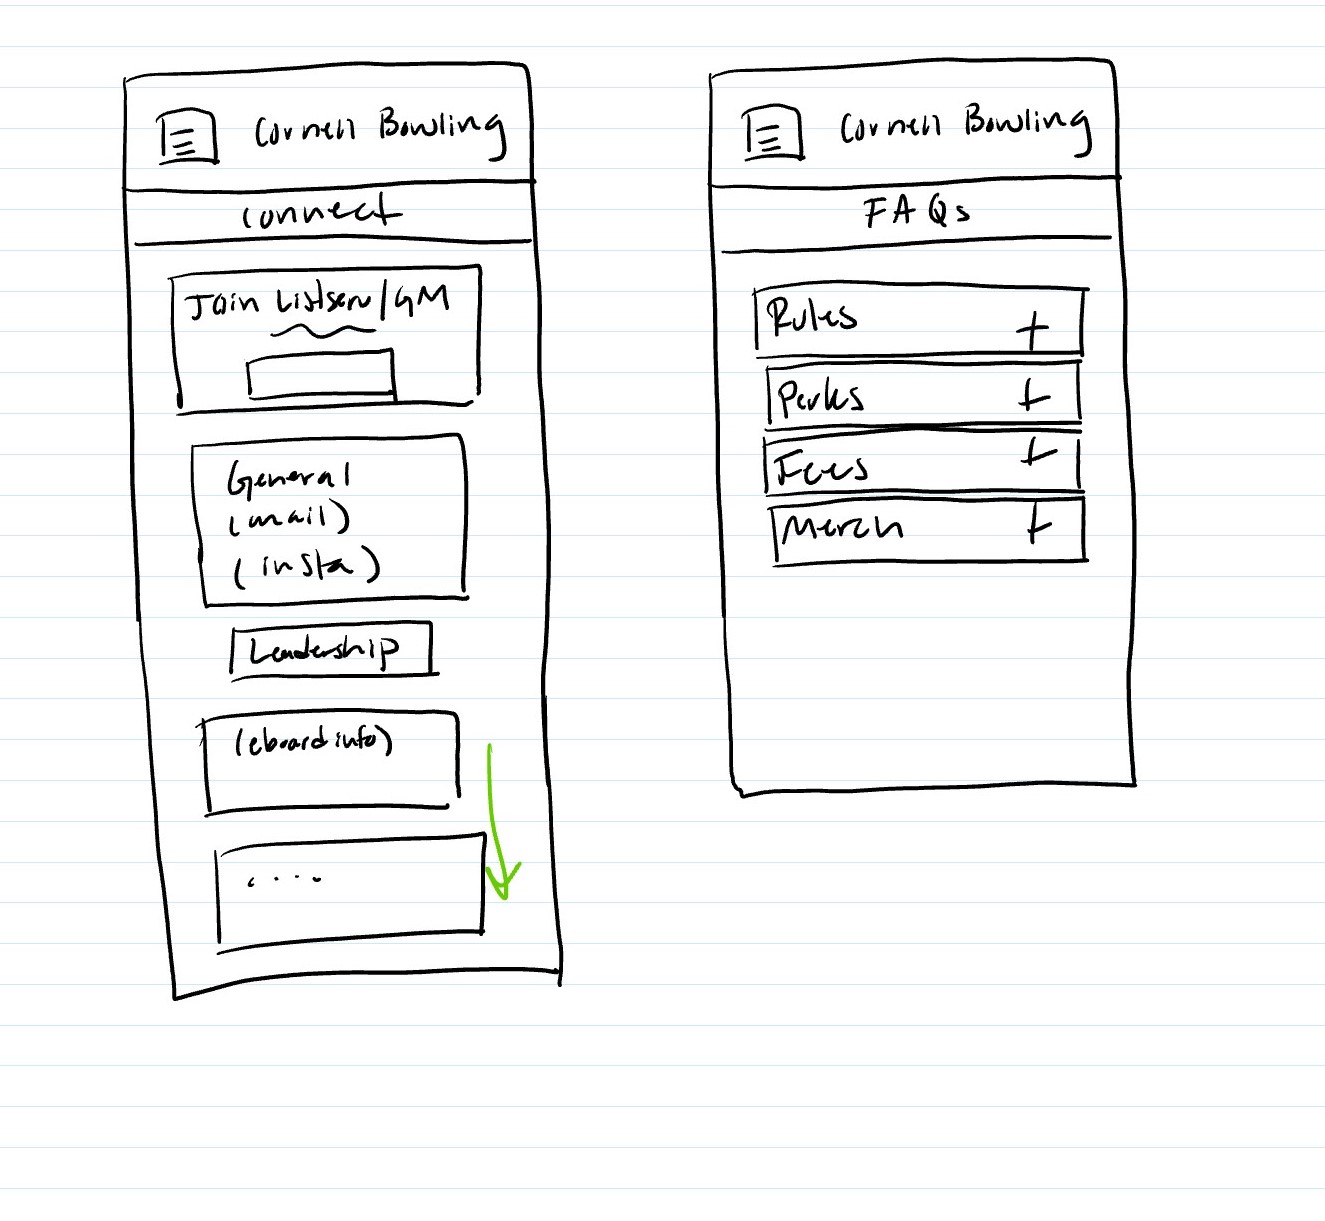 Cornell Bowling
connect
Join Listserv/GM
General
(mail)
(insta)
Leadership
(eboard info)
....
Cornell Bowling
FAQs
Rules +
Perks +
Fees +
Merch +